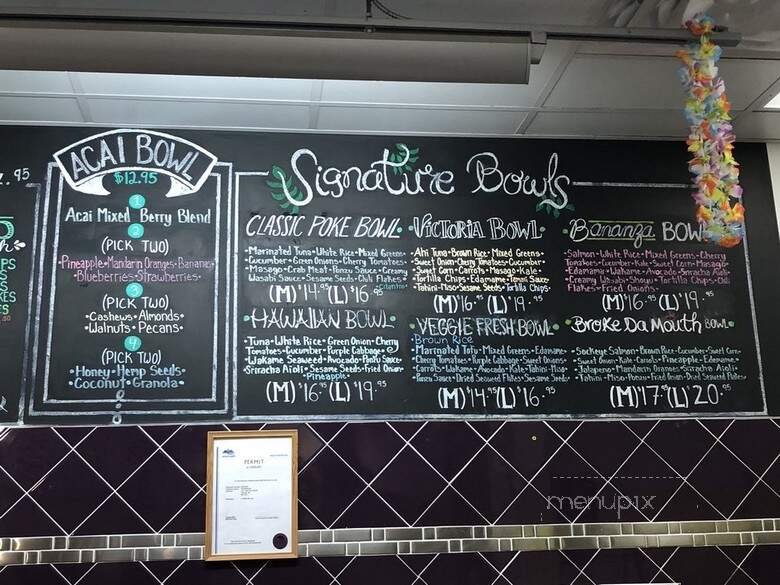 2.95
ACAI BOWL
$12.95
1
Acai Mixed Berry Blend
2
(PICK TWO)
Pineapple • Mandarin Oranges • Bananas
Blueberries • Strawberries
3
(PICK TWO)
Cashews • Almonds
Walnuts • Pecans
4
(PICK TWO)
Honey • Hemp Seeds
Coconut • Granola
Signature Bowls
CLASSIC POKE BOWL
Marinated Tuna • White Rice • Mixed Greens
Cucumber • Green Onion • Cherry Tomatoes
Masago • Crab Meat • Ponzu Sauce • Creamy
Wasabi Sauce • Sesame Seeds • Chili Flakes
Cilantro
(M) $14.95 (L) $16.95
HAWAIIAN BOWL
Tuna • White Rice • Green Onion • Cherry
Tomatoes • Cucumber • Purple Cabbage
Wakame Seaweed • Avocado • Ponzu Sauce
Sriracha Aioli • Sesame Seeds • Fried Onion
Pineapple
(M) $16.95 (L) $19.95
VICTORIA BOWL
Ahi Tuna • Brown Rice • Mixed Greens
Sweet Onion • Cherry Tomatoes • Cucumber
Sweet Corn • Carrots • Masago • Kale
Tortilla Chips • Edamame • Ponzu Sauce
Tahini-Miso • Sesame Seeds • Tortilla Chips
(M) $16.95 (L) $19.95
VEGGIE FRESH BOWL
Brown Rice
Marinated Tofu • Mixed Greens • Edamame
Cherry Tomatoes • Purple Cabbage • Sweet Onion
Carrots • Wakame • Avocado • Kale • Tahini-Miso
Ponzu Sauce • Dried Seaweed Flakes • Sesame Seeds
(M) $14.95 (L) $16.95
Bananza BOWL
Salmon • White Rice • Mixed Greens • Cherry
Tomatoes • Cucumber • Kale • Sweet Corn • Masago
Edamame • Wakame • Avocado • Sriracha Aioli
Creamy Wasabi • Shoyu • Tortilla Chips • Chili
Flakes • Fried Onions
(M) $16.95 (L) $19.95
Broke Da Mouth BOWL
Sockeye Salmon • Brown Rice • Cucumber • Sweet Corn
Sweet Onion • Carrots • Pineapple • Edamame
Jalapeno • Mandarin Oranges • Sriracha Aioli
Tahini-Miso • Ponzu • Fried Onion • Dried Seaweed Flakes
(M) $17.95 (L) $20.95
PERMIT
menupix